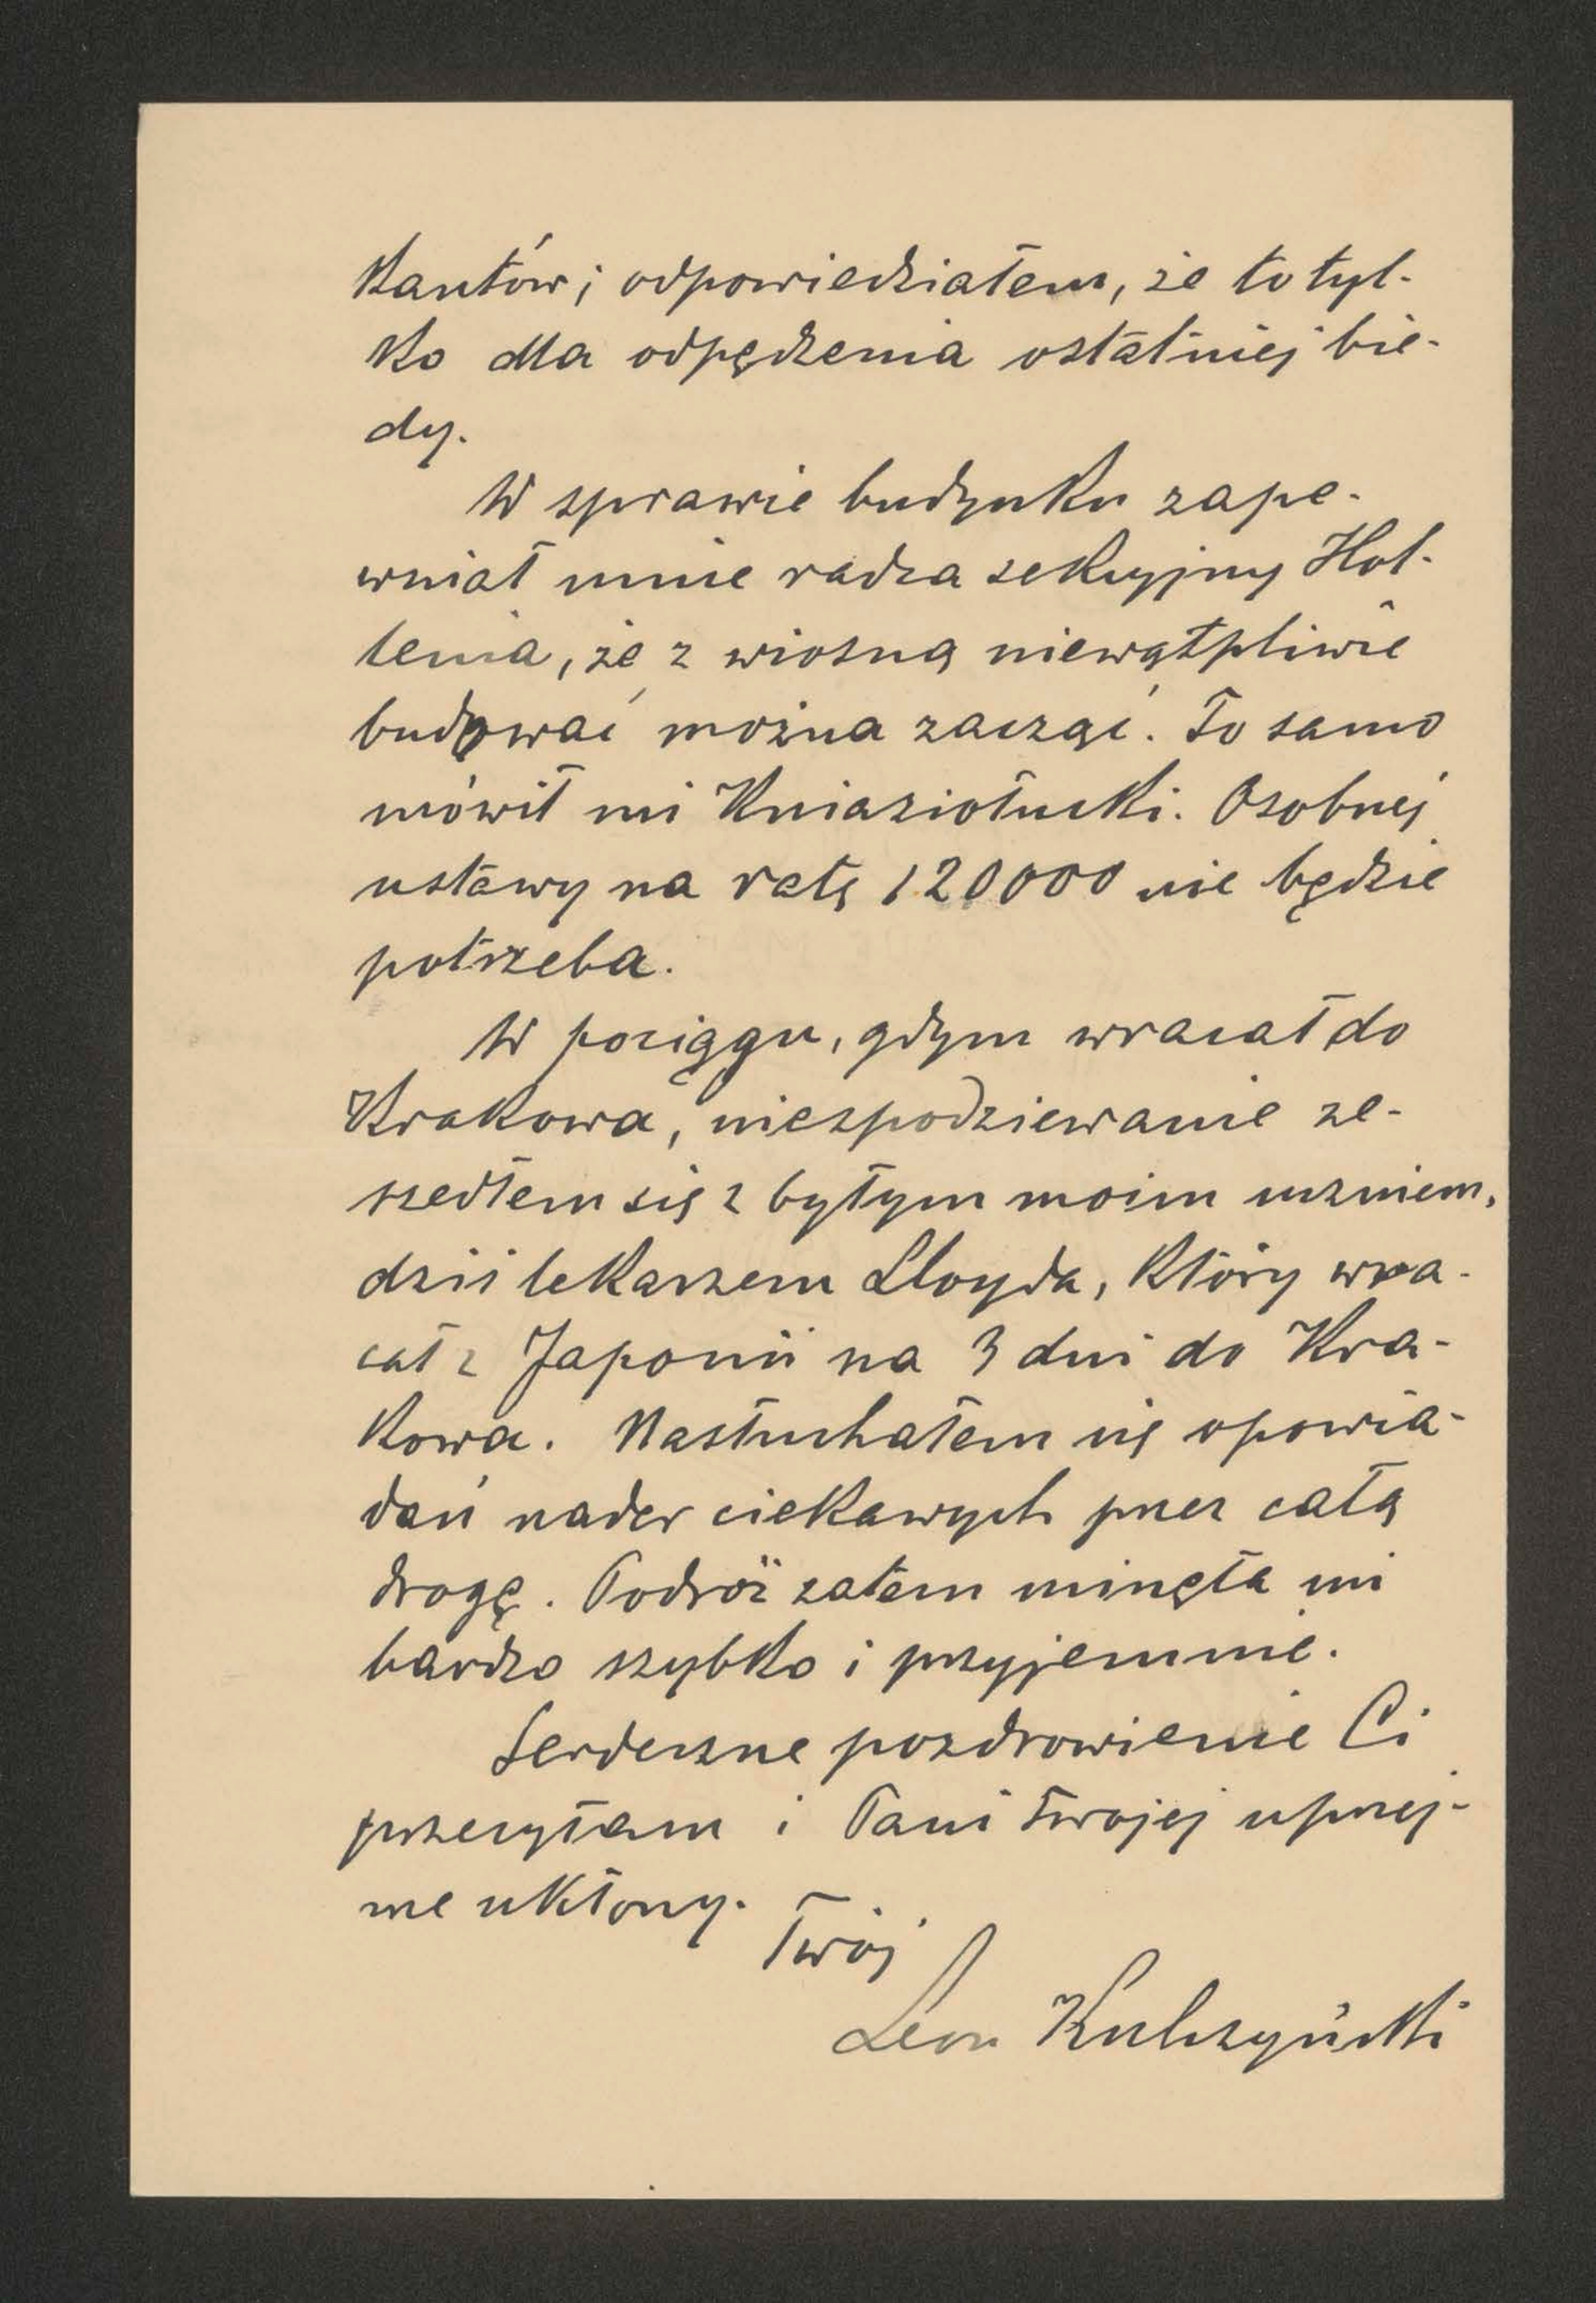 kantów; odpowiedziałem, że to tyl-
ko dla odpędzenia ostatniej bie-
dy.
W sprawie budynku zape-
wniał mnie radca sekcyjny Hol-
lenia, że z wiosną niewątpliwie
budować można zacząć. To samo
mówił mi Kniaziołucki. Osobnej
ustawy na ratę 120000 nie będzie
potrzeba.
W pociągu, gdym wracał do
Krakowa, niespodziewanie ze-
szedłem się z byłym moim uczniem,
dziś lekarzem Lloyda, który wra-
cał z Japonii na 3 dni do Kra-
kowa. Nasłuchałem się opowia-
dań nader ciekawych przez całą
drogę. Podróż zatem minęła mi
bardzo szybko i przyjemnie.
Serdeczne pozdrowienie Ci
przesyłam i Pani Twojej uprzej-
me ukłony.
Twój
Leon Kulczyński